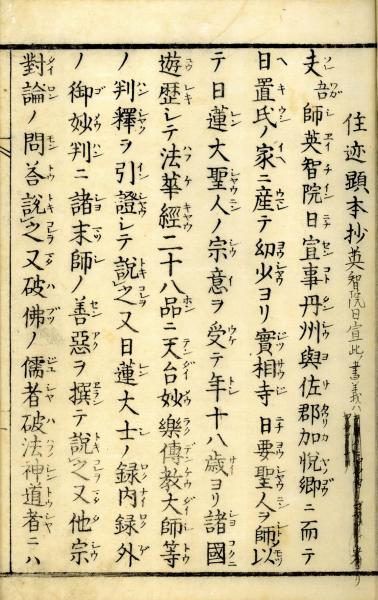 住迹顕本抄英智院日宜此書義ハ
夫吾師英智院日宜事丹州與佐郡加悦郷ニ而テ
日置氏ノ家ニ産テ幼少ヨリ實相寺日要聖人ヲ師以
テ日蓮大聖人ノ宗意ヲ受テ年十八歳ヨリ諸國
遊歴シテ法華經二十八品ニ天台妙樂傳教大師等
ノ判釋ヲ引證シテ説之又日蓮大士ノ録内録外
ノ御妙判ニ諸末師ノ善惡ヲ撰テ説之又他宗
對論ノ問荅説之又破佛ノ儒者破法神道者ニハ